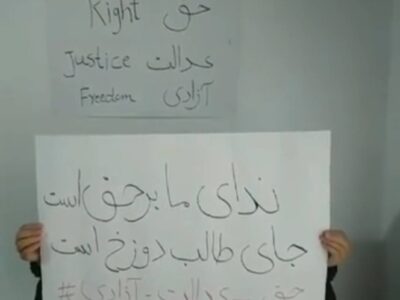 Right حق
Justice عدالت
Freedom آزادی
ندای ما برحق است
جای طالب دوزخ است
#حق - عدالت - آزادی